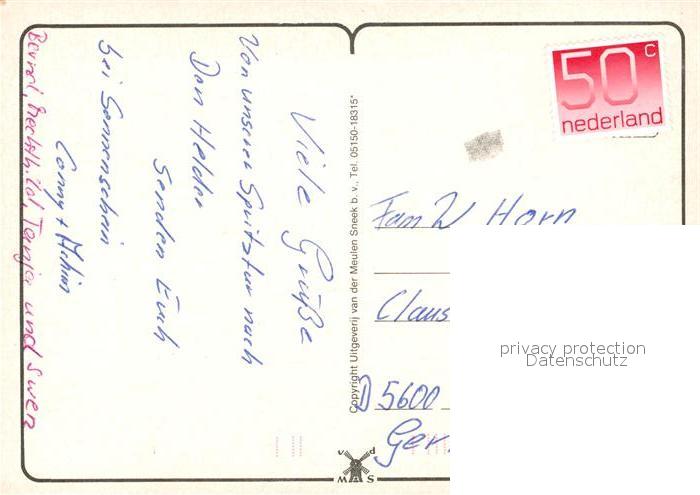 Viele Grüße
Von unserer Spritztur nach
Den Helder
Senden Euch
bei Sonnenschein
Conny + Achim
Bernd, Mechthild, Tanja und Swen
Copyright Uitgeverij van der Meulen Sneek b.v., Tel. 05150-18315*
50 c
nederland
Fam W Horn
Claus
D 5600
Ger
privacy protection
Datenschutz
v d
M S